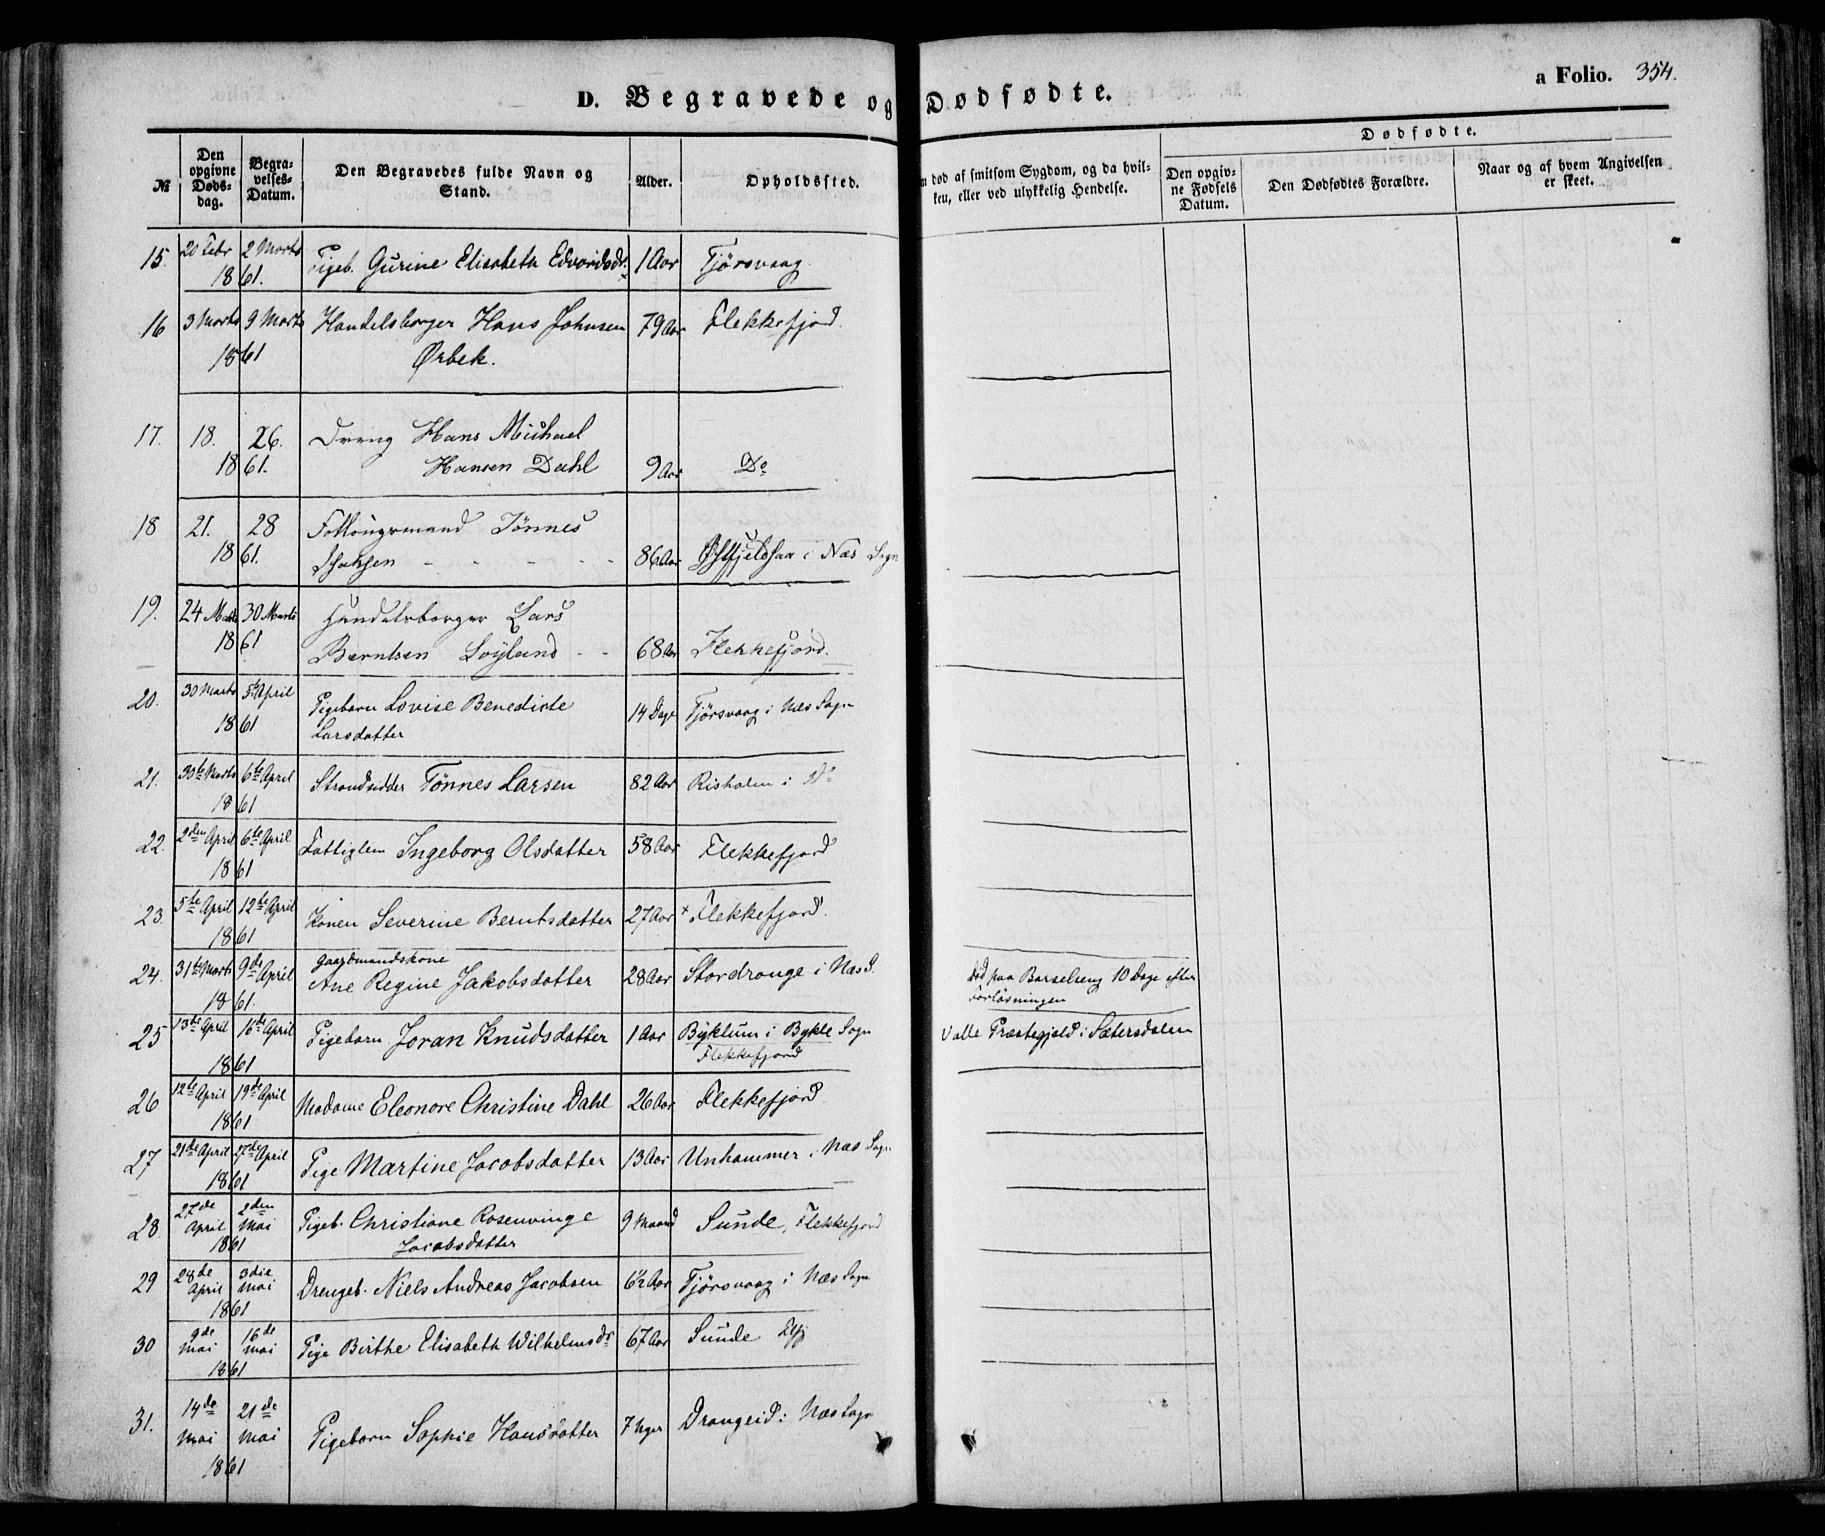 a Folio. 354.
D. Begravede og Dødfødte.
№
Den opgivne Døds-dag.
Begra-velses-Datum.
Den Begravedes fulde Navn og Stand.
Alder.
Opholdssted.
død af smitsom Sygdom, og da hvil-
ken, eller ved ulykkelig Hendelse.
Dødfødte.
Den opgiv-ne Fødsels Datum.
Den Dødfødtes Forældre.
Naar og af hvem Angivelsen er skeet.
15. 20 Febr 2 Marts Pigeb. Gurine Elisabeth Edvardsdr. 1 Aar Tjørsvaag.
1861.
16 3 Marts 9 Marts Handelsborger Hans Johnsen 79 Aar Flekkefjord.
1861 Ørbek.
17. 18. 26. Dreng Hans Michael
1861. Hansen Dahl 9 Aar Do
18 21. 28 Follougsmand Tönnes
1861. 86 Aar i Næs Sogn
19. 24 Marts 30 Marts Handelsborger Lars
1861 Berntsen Loyland - - 68 Aar Flekkefjord.
20. 30 Marts 5te April Pigebarn Lovise Benedicte 14 Dage Tjørsvaag i Næs Sogn
1861 Larsdatter
21. 30te Marts 6te April Strandsidder Tönnes Larsen 82 Aar Risholm i Do
1861
22. 2den April 6te April Fattiglem Ingeborg Olsdatter 58 Aar Flekkefjord
1861
23. 5te April 12te April Konen Severine Berntsdatter 27 Aar + Flekkefjord.
1861
24. 31te Marts 9de April gaardmandskone
Ane Regine Jakobsdatter 28 Aar Stordrange i Næs S. Död paa Barselseng 10 Dage efter
1861. Forløsningen
25 13de April 16de April Pigebarn Joran Knudsdatter 1 Aar Byklum i Bykle Sogn Valle Præstegjeld i Sætersdalen
1861 Flekkefjord
26 12te April 19de April Madame Eleonore Christine Dahl 26 Aar Flekkefjord
1861
27 21de April 27de April Pige Martine Jacobsdatter 13 Aar Unhammer i Næs Sogn
1861
28. 27de April 2den Mai Pigeb. Christiane Rosenvinge 9 Maand Sunde, Flekkefjord
1861 Jacobsdatter
29 28de April 3die Mai Drengeb. Niels Andreas Jacobsen 6½ Aar Tjørsvaag i Næs Sogn
1861
30 9de Mai 16de Mai Pige Birthe Elisabeth Wilhelmsdr 67 Aar Sunde Flfj
1861
31. 14de Mai 21de Mai Pigebarn Sophie Hansdatter 7 Uger Drangeid i Næs Sogn
1861